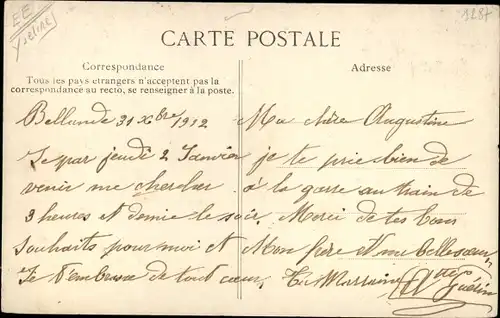 EE
Yveline
1287
CARTE POSTALE
Correspondance
Adresse
Tous les pays étrangers n'acceptent pas la
correspondance au recto, se renseigner à la poste.
Bellande 31 Xbre 1912 Ma chère Augustine
Je par jeudi 2 Janvier je te prie bien de
venir me chercher à la garre au train de
3 heures et demie le soir. Merci de tes bons
souhaits pour moi et Mon frère et ma bellesoeur,
Je t'embrasse de tout coeur, Ta Marraine
Guérin